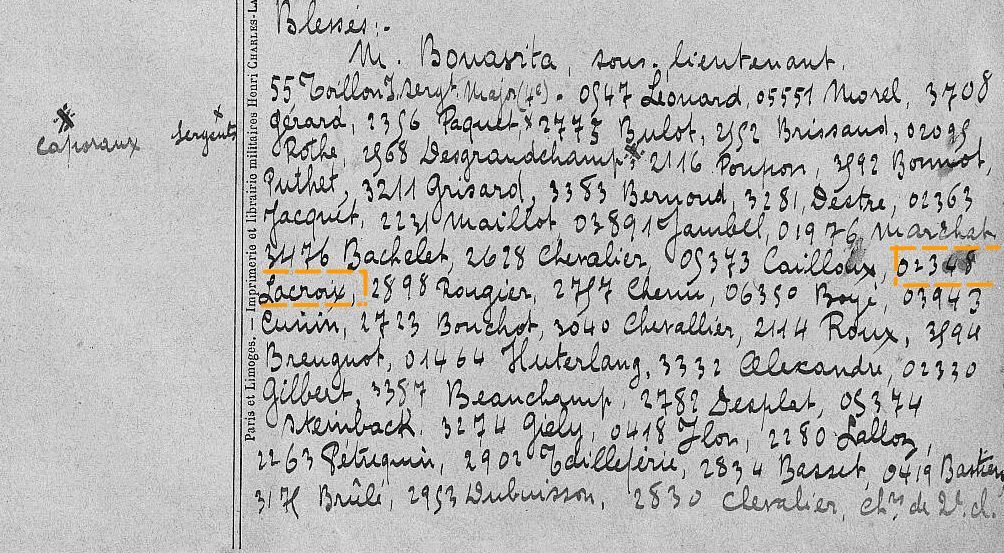 Blessés:-
M. Bonavita, sous-lieutenant.
55 Toillon J. Sergt. Major (4e) - 0547 Léonard, 05551 Morel, 3708
Gérard, 2356 Paquet, x 2773 Bulot, 2152 Brissaud, 02095
Rothé, 2568 Desgrandchamp, x 2116 Poupon, 3592 Bonnot,
Puthet, 3211 Grisard, 3383 Bernoud, 3281 Destre, 02363
Jacquet, 2231 Maillot, 03891 Jambel, 01976 Marchat
3476 Bachelet, 2628 Chevalier, 05373 Cailloux, 02348
Lacroix, 2898 Rougier, 2757 Chenu, 06350 Boyé, 03943
Cunin, 2723 Bouchot, 3040 Chevallier, 2114 Roux, 3594
Breugnot, 01464 Huterlang, 3332 Alexandre, 02330
Gilbert, 3357 Beauchamp, 2782 Desplat, 05374
Steinback, 3274 Giély, 0418 Flon, 2280 Lalloz,
2263 Petreguin, 2902 Tailleferie, 2834 Basset, 0419 Bastien
3175 Brûlé, 2953 Dubuisson, 2830 Chevalier, chrs de 2e cl.
x
Caporaux
x
Sergents
Paris et Limoges. — Imprimerie et librairie militaires Henri CHARLES-LA